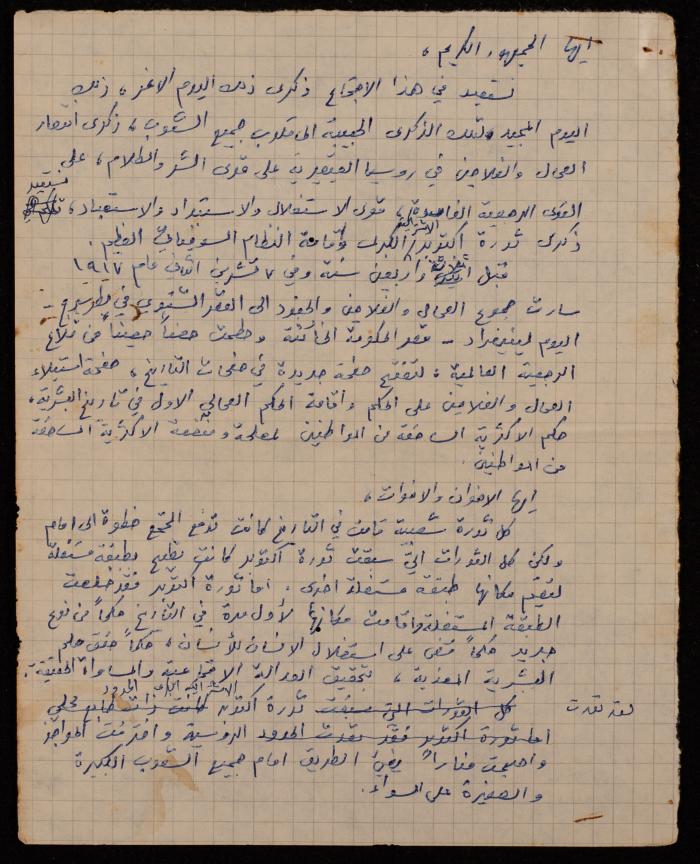 ايها الجمهور الكريم ،
نستعيد في هذا الاجتماع ذكرى ذلك اليوم الأغر ، ذلك
اليوم المجيد ، تلك الذكرى الحبيبة الى قلوب جميع الشعوب ، ذكرى انتصار
العمال والفلاحين في روسيا القيصرية على قوى الشر والظلام ، على
القوى الرجعية الفاسدة ، قوى الاستغلال والاستبداد والاستعباد ، نستعيد
ذكرى ثورة اكتوبر الاشتراكية الكبرى واقامة النظام السوفياتي العظيم .
قبل واربعين سنة وفي ٧ تشرين الثاني عام ١٩١٧
سارت جموع العمال والفلاحين والجنود الى القصر الشتوي في بطرسبرج -
اليوم لينينغراد - مقر الحكومة الخائنة وحطمت حصناً حصيناً من قلاع
الرجعية العالمية ، لتفتح صفحة جديدة في صفحات التاريخ ، صفحة استيلاء
العمال والفلاحين على الحكم واقامة الحكم العمالي الاول في تاريخ البشرية ،
حكم الاكثرية الساحقة من المواطنين لمصلحة ومنفعة الاكثرية الساحقة
من المواطنين .
ايها الاخوان والاخوات ،
كل ثورة شعبية قامت في التاريخ كانت تدفع المجتمع خطوة الى امام
ولكن كل الثورات التي سبقت ثورة اكتوبر كانت تطيح بطبقة مستغلة
لتقيم مكانها طبقة مستغلة اخرى . اما ثورة اكتوبر فقد خلعت
الطبقة المستغلة واقامت مكانها لأول مرة في التاريخ حكماً من نوع
جديد حكماً قضى على استغلال الانسان للأنسان ، حكماً حقق حلم
البشرية المعذبة ، بتحقيق العدالة الاجتماعية والمساواة الحقيقية .
لقد تعدت كل الثورات التي سبقت ثورة اكتوبر الاشتراكية الحدود كانت ذات طابع محلي
اما ثورة اكتوبر فقد تعدت الحدود الروسية واخترقت الحواجز
واصبحت مناراً يضيء الطريق امام جميع الشعوب الكبيرة
والصغيرة على السواء .